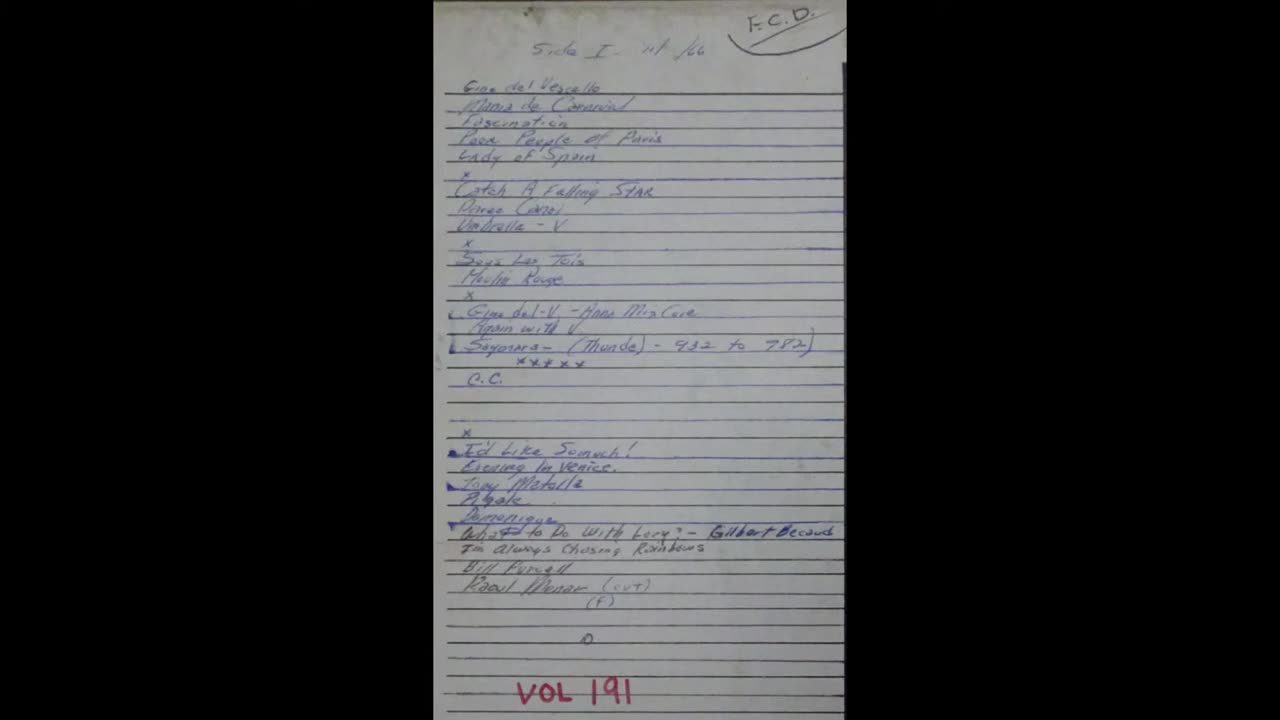 F.C.D.
Side I /66
Gina del
Maria de
Fascination
Poor People of Paris
Lady of Spain
x
Catch A Falling STAR
Umbrella - V
x
Sous Les Tois
Moulin Rouge
x
Gina del-V. - Anna
Again with V.
Sayonara - (Thunde) - 932 to 982)
*****
C.C.
x
I'd Like Somuch!
Evening In Venice.
Tony
Pigale
Domenique
What to Do With Lory? - Gilbert Becaud
I'm Always Chasing Rainbows
Bill Purcell
Raoul (cut)
(F)
O
VOL 191